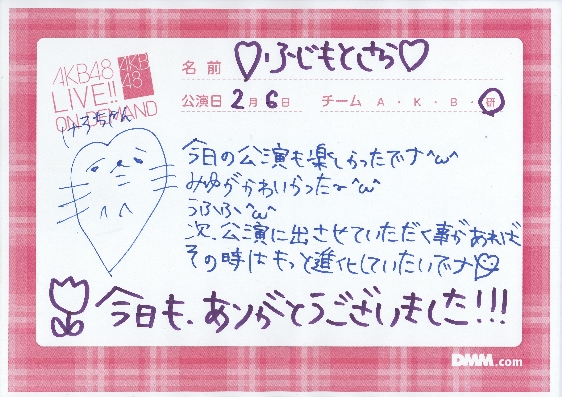 AKB48
LIVE!!
ON DEMAND
AKB
48
名前 ♡ふじもとさら♡
公演日 2月6日 チーム A・K・B・研
今日の公演も楽しかったです^ω^
みゆがかわいかったー^ω^
うふふ^ω^
次、公演に出させていただく事があれば
その時はもっと進化していたいです♡
今日も、ありがとうございました!!!
DMM.com